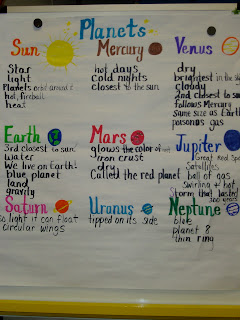 Planets
Sun
Star
light
Planets orbit around it
hot, fireball
heat
Mercury
hot days
cold nights
closest to the sun
Venus
dry
brightest in the
cloudy
2nd closest to sun
follows Mercury
Same size as Earth
poisonous gas
Earth
3rd closest to sun
water
We live on Earth!
blue planet
land
gravity
Mars
glows the color of
iron crust
dry
Called the red planet
Jupiter
Great Red Spot
Satellites
ball of gas
swirling + hot
Storm that lasted
300 years
Saturn
so light it can float
circular wings
Uranus
tipped on its side
Neptune
blue
planet 8
thin ring